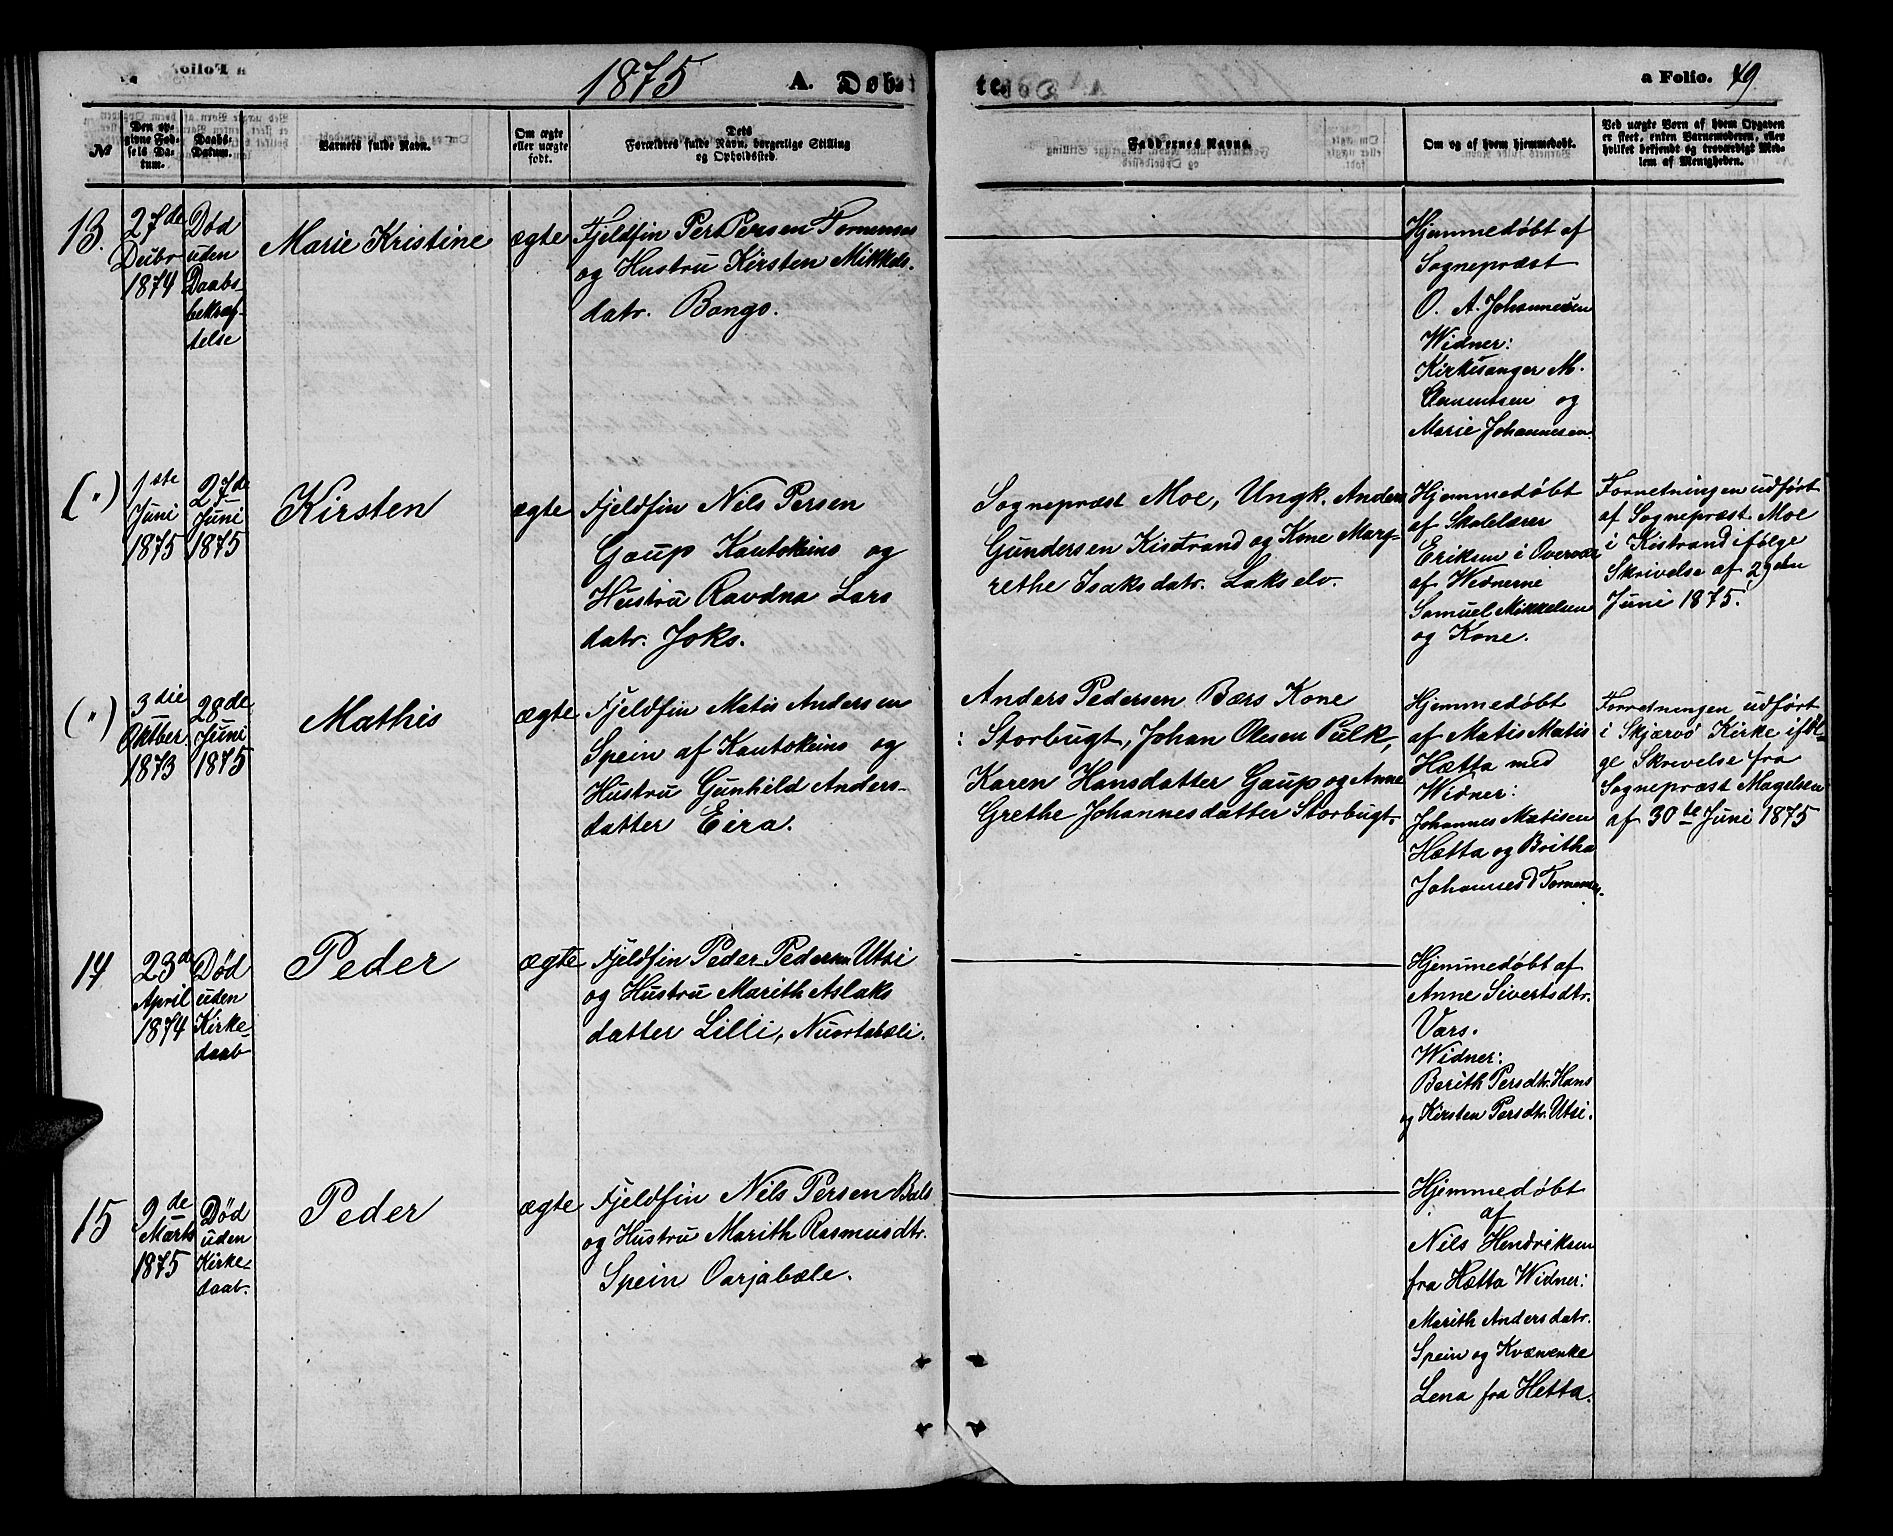 1875 A. Døbte. a Folio. 49.
№
Den op-
givne Fød-
sels Da-
tum.
Daabs-
Datum.
Barnets fulde Navn.
Om ægte
eller uægte
født.
Dets
Forældres fulde Navn, borgerlige Stilling
og Opholdssted.
Faddernes Navne.
Om og af hvem hjemmedøbt.
Ved uægte Børn af hvem Opgaven
er skeet, enten Barnemoderen, eller
hvilket bekjendt og troværdigt Med-
lem af Menigheden.
13.
27de
Decbr
1874
Død
uden
Daabs-
bekræf-
telse
Marie Kristine
ægte
Fjeldfin Per Persen Tornensis
og Hustru Kirsten Mikkels-
datr. Bongo.
Hjemmedøbt af
Sognepræst
O. A. Johannesen
Widner:
Kirkesanger M.
Clementsen og
Marie Johannesen
(")
1ste
Juni
1875
27de
Juni
1875
Kirsten
ægte
Fjeldfin Nils Persen
Gaup Kautokeino og
Hustru Ravdna Lars
datr. Joks.
Sognepræst Moe, Ungk. Anders
Gundersen Kistrand og Kone Marg-
rethe Isaksdatr. Lakselv.
Hjemmedøbt
af Skolelærer
Eriksen i Overvær
af Widnerne
Samuel Mikkelsen
og Kone.
Forretningen udført
af Sognepræst Moe
i Kistrand ifølge
Skrivelse af 29den
Juni 1875.
(")
3die
Oktber
1873
28de
Juni
1875
Mathis
ægte
Fjeldfin Matis Andersen
Spein af Kautokeino og
Hustru Gunhild Anders-
datter Eira.
Anders Pedersen Bærs Kone
: Storbugt, Johan Olesen Pulk,
Karen Hansdatter Gaup og Anne
Grethe Johannesdatter Storbugt.
Hjemmedøbt
af Matis Matis
Hætta med
Widner:
Johannes Matisen
Hætta og Britha
Johannesd Tornensis.
Forretningen udført
i Skjærvø Kirke iføl-
ge Skrivelse fra
Sognepræst Magelsen
af 30te Juni 1875
14
23d
April
1874
Død
uden
Kirke-
daab
Peder
ægte
Fjeldfin Peder Pedersen Utsi
og Hustru Marith Aslaks
datter Lilli, Nuortabæli.
Hjemmedøbt af
Anne Sivertsdtr.
Vars.
Widner:
Berith Persdtr. Hans
og Kirsten Persdtr. Utsi.
15
9de
Marts
1875
Død
uden
Kirke-
daab.
Peder
ægte
Fjeldfin Nils Persen Bals
og Hustru Marith Rasmusdtr.
Spein Oarjabæle.
Hjemmedøbt
af
Nils Hendriksen
fra Hætta Widner:
Marith Andersdatr.
Spein og Kvænenke
Lena fra Hetta.